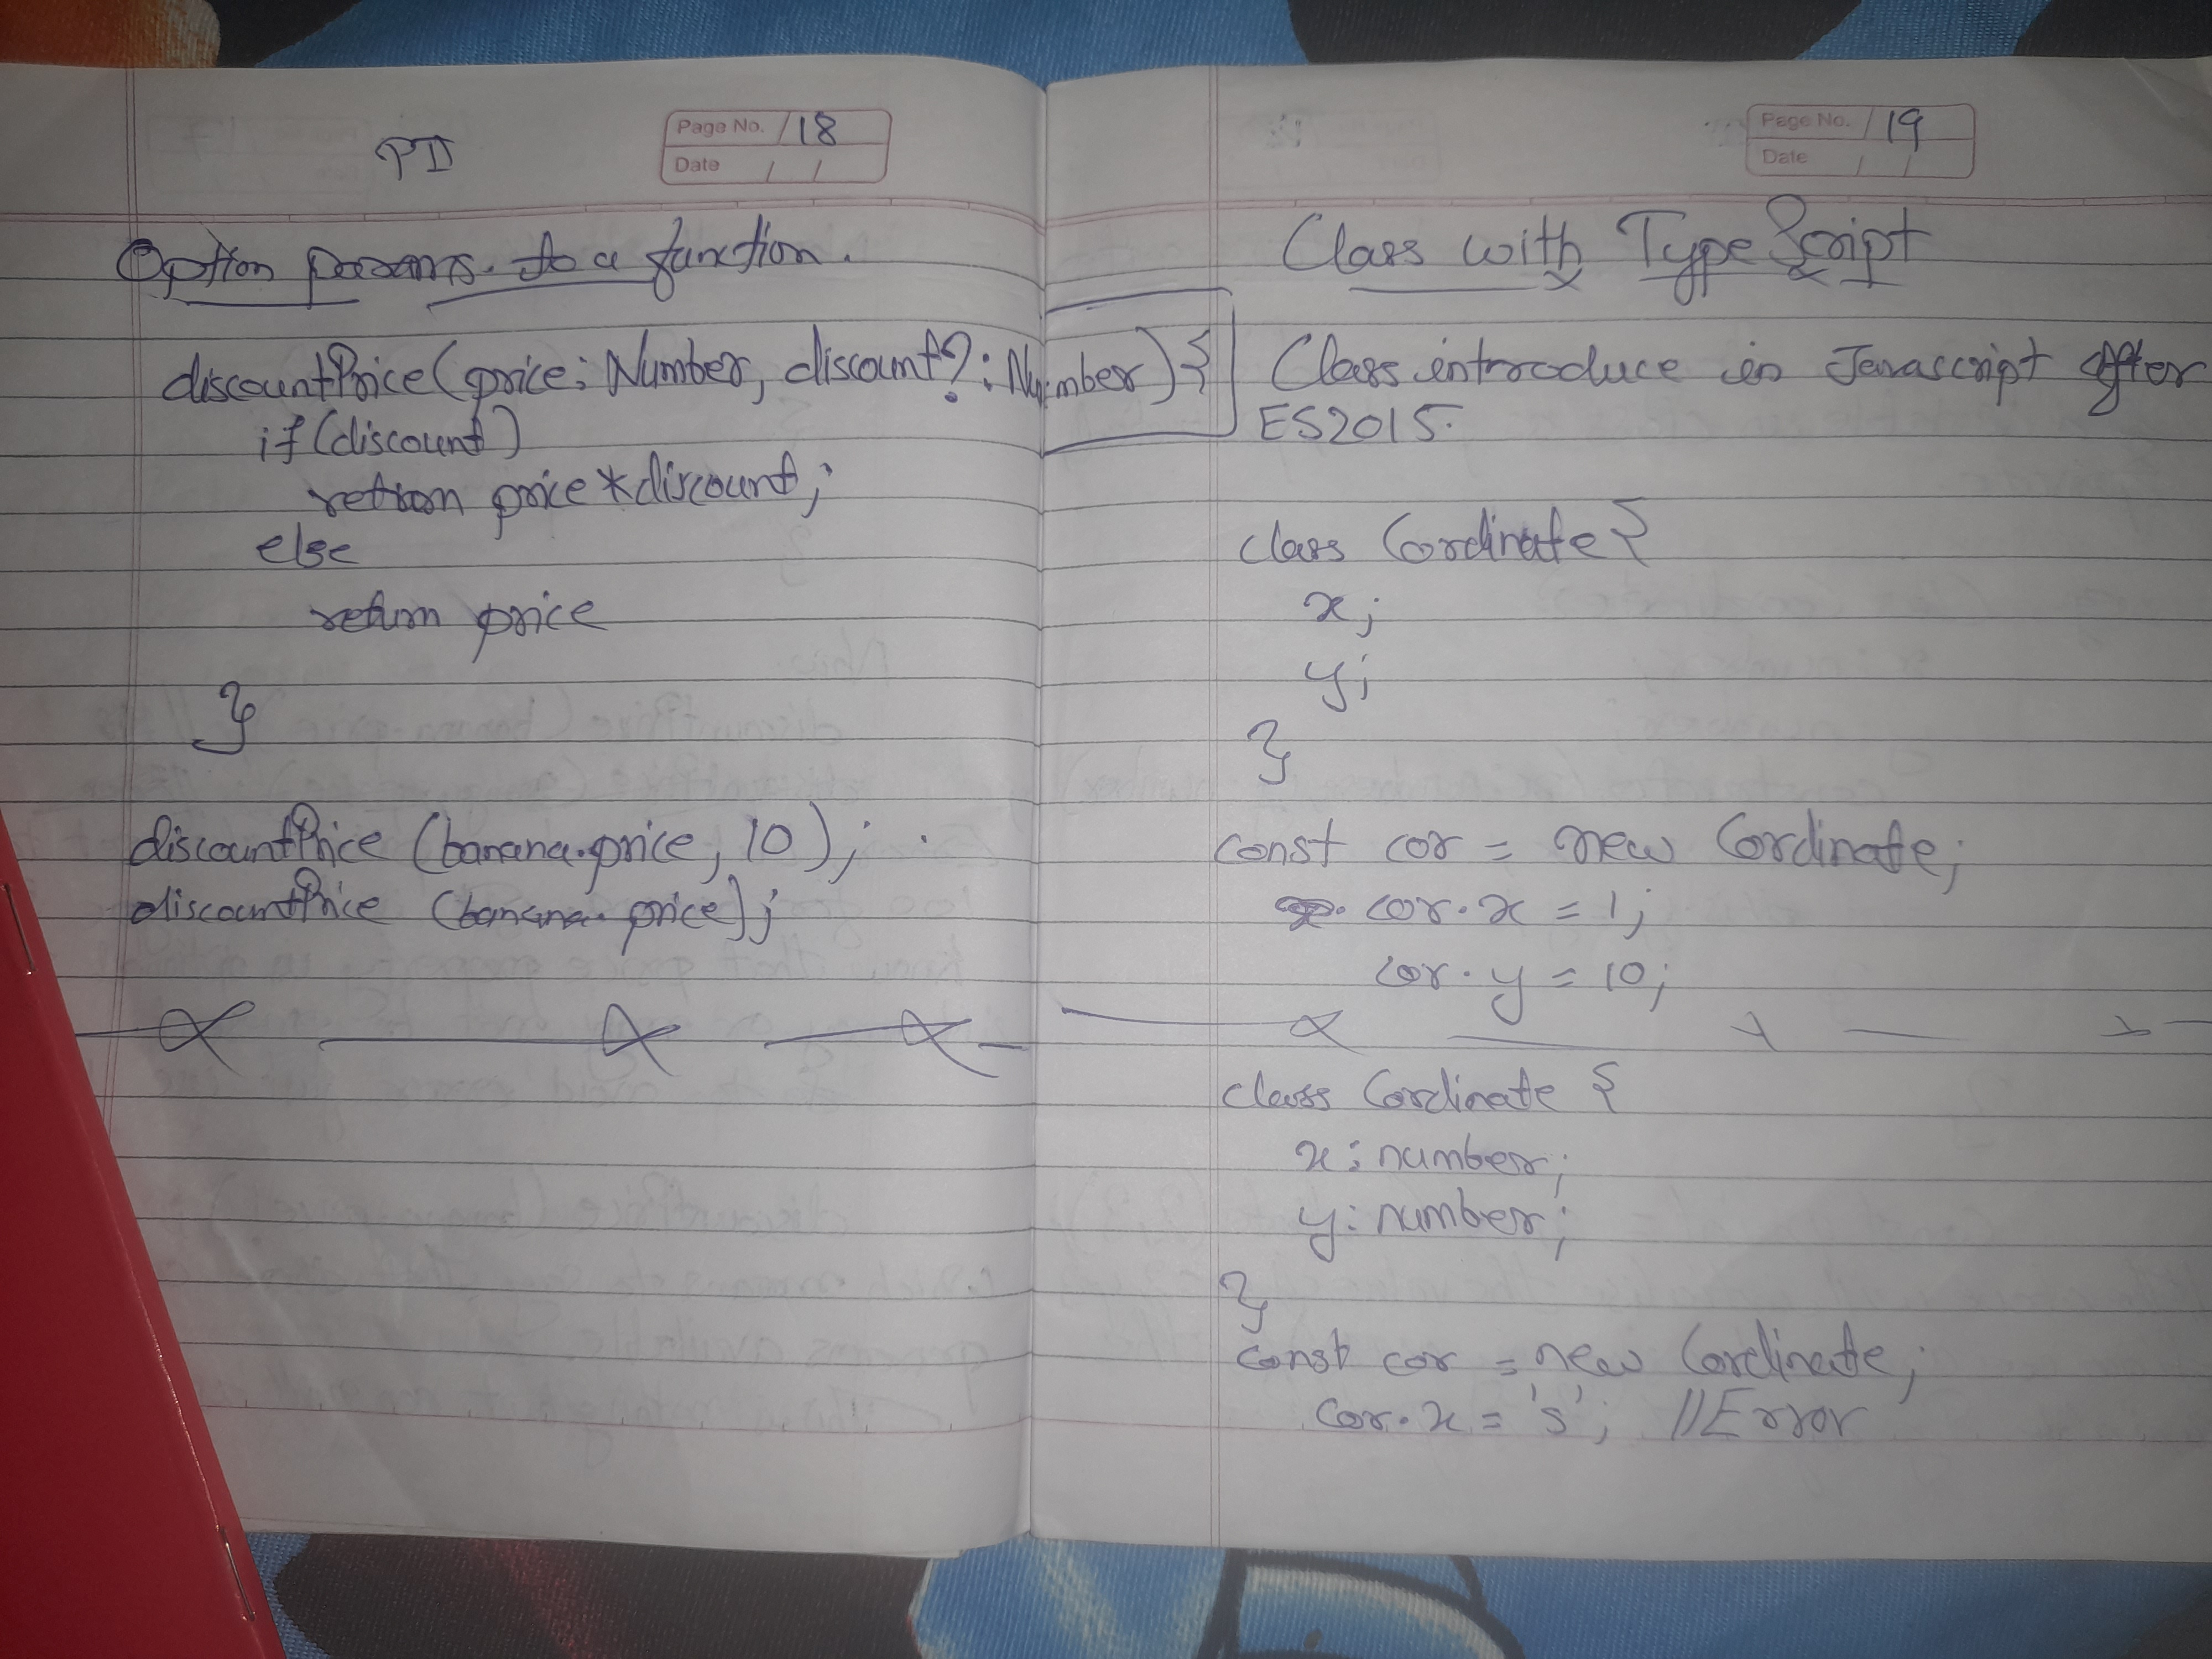 PTI
Page No. 18
Date / /
Option params. to a function.
discountPrice(price: Number, discount?: Number) {
if (discount)
return price * discount;
else
return price
}
discountPrice (banana.price, 10);
discountPrice (banana.price);
Page No. 19
Date / /
Class with TypeScript
Class introduce in Javascript after
ES2015.
class Cordinate {
x;
y;
}
const cor = new Cordinate;
cor.x = 1;
cor.y = 10;
class Cordinate {
x: number;
y: number;
}
const cor = new Cordinate;
cor.x = 's'; //Error